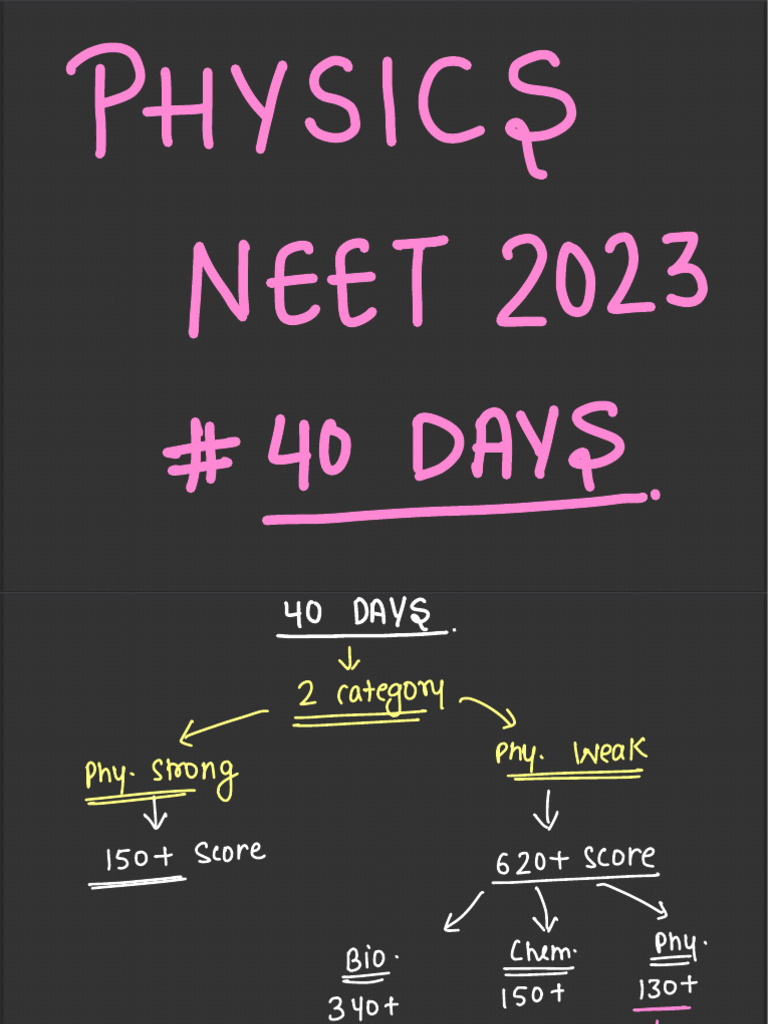 PHYSICS
NEET 2023
# 40 DAYS.
40 DAYS.
2 category
Phy. Strong
Phy. Weak
150+ Score
620+ Score
Bio.
Chem.
Phy.
340+
150+
130+